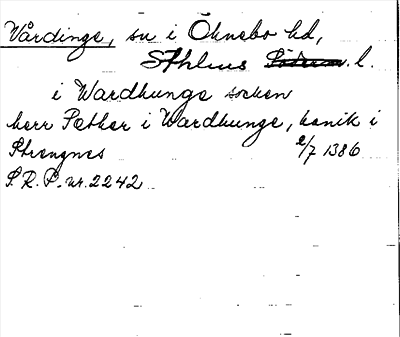 Vårdinge, sn i Öknebo hd,
Sthlms Söderm. l.
i Wardhunge socken
herr Pæthar i Wardhunge, kanik i
Strengnes 2/7 1386
S. R. P. nr. 2242